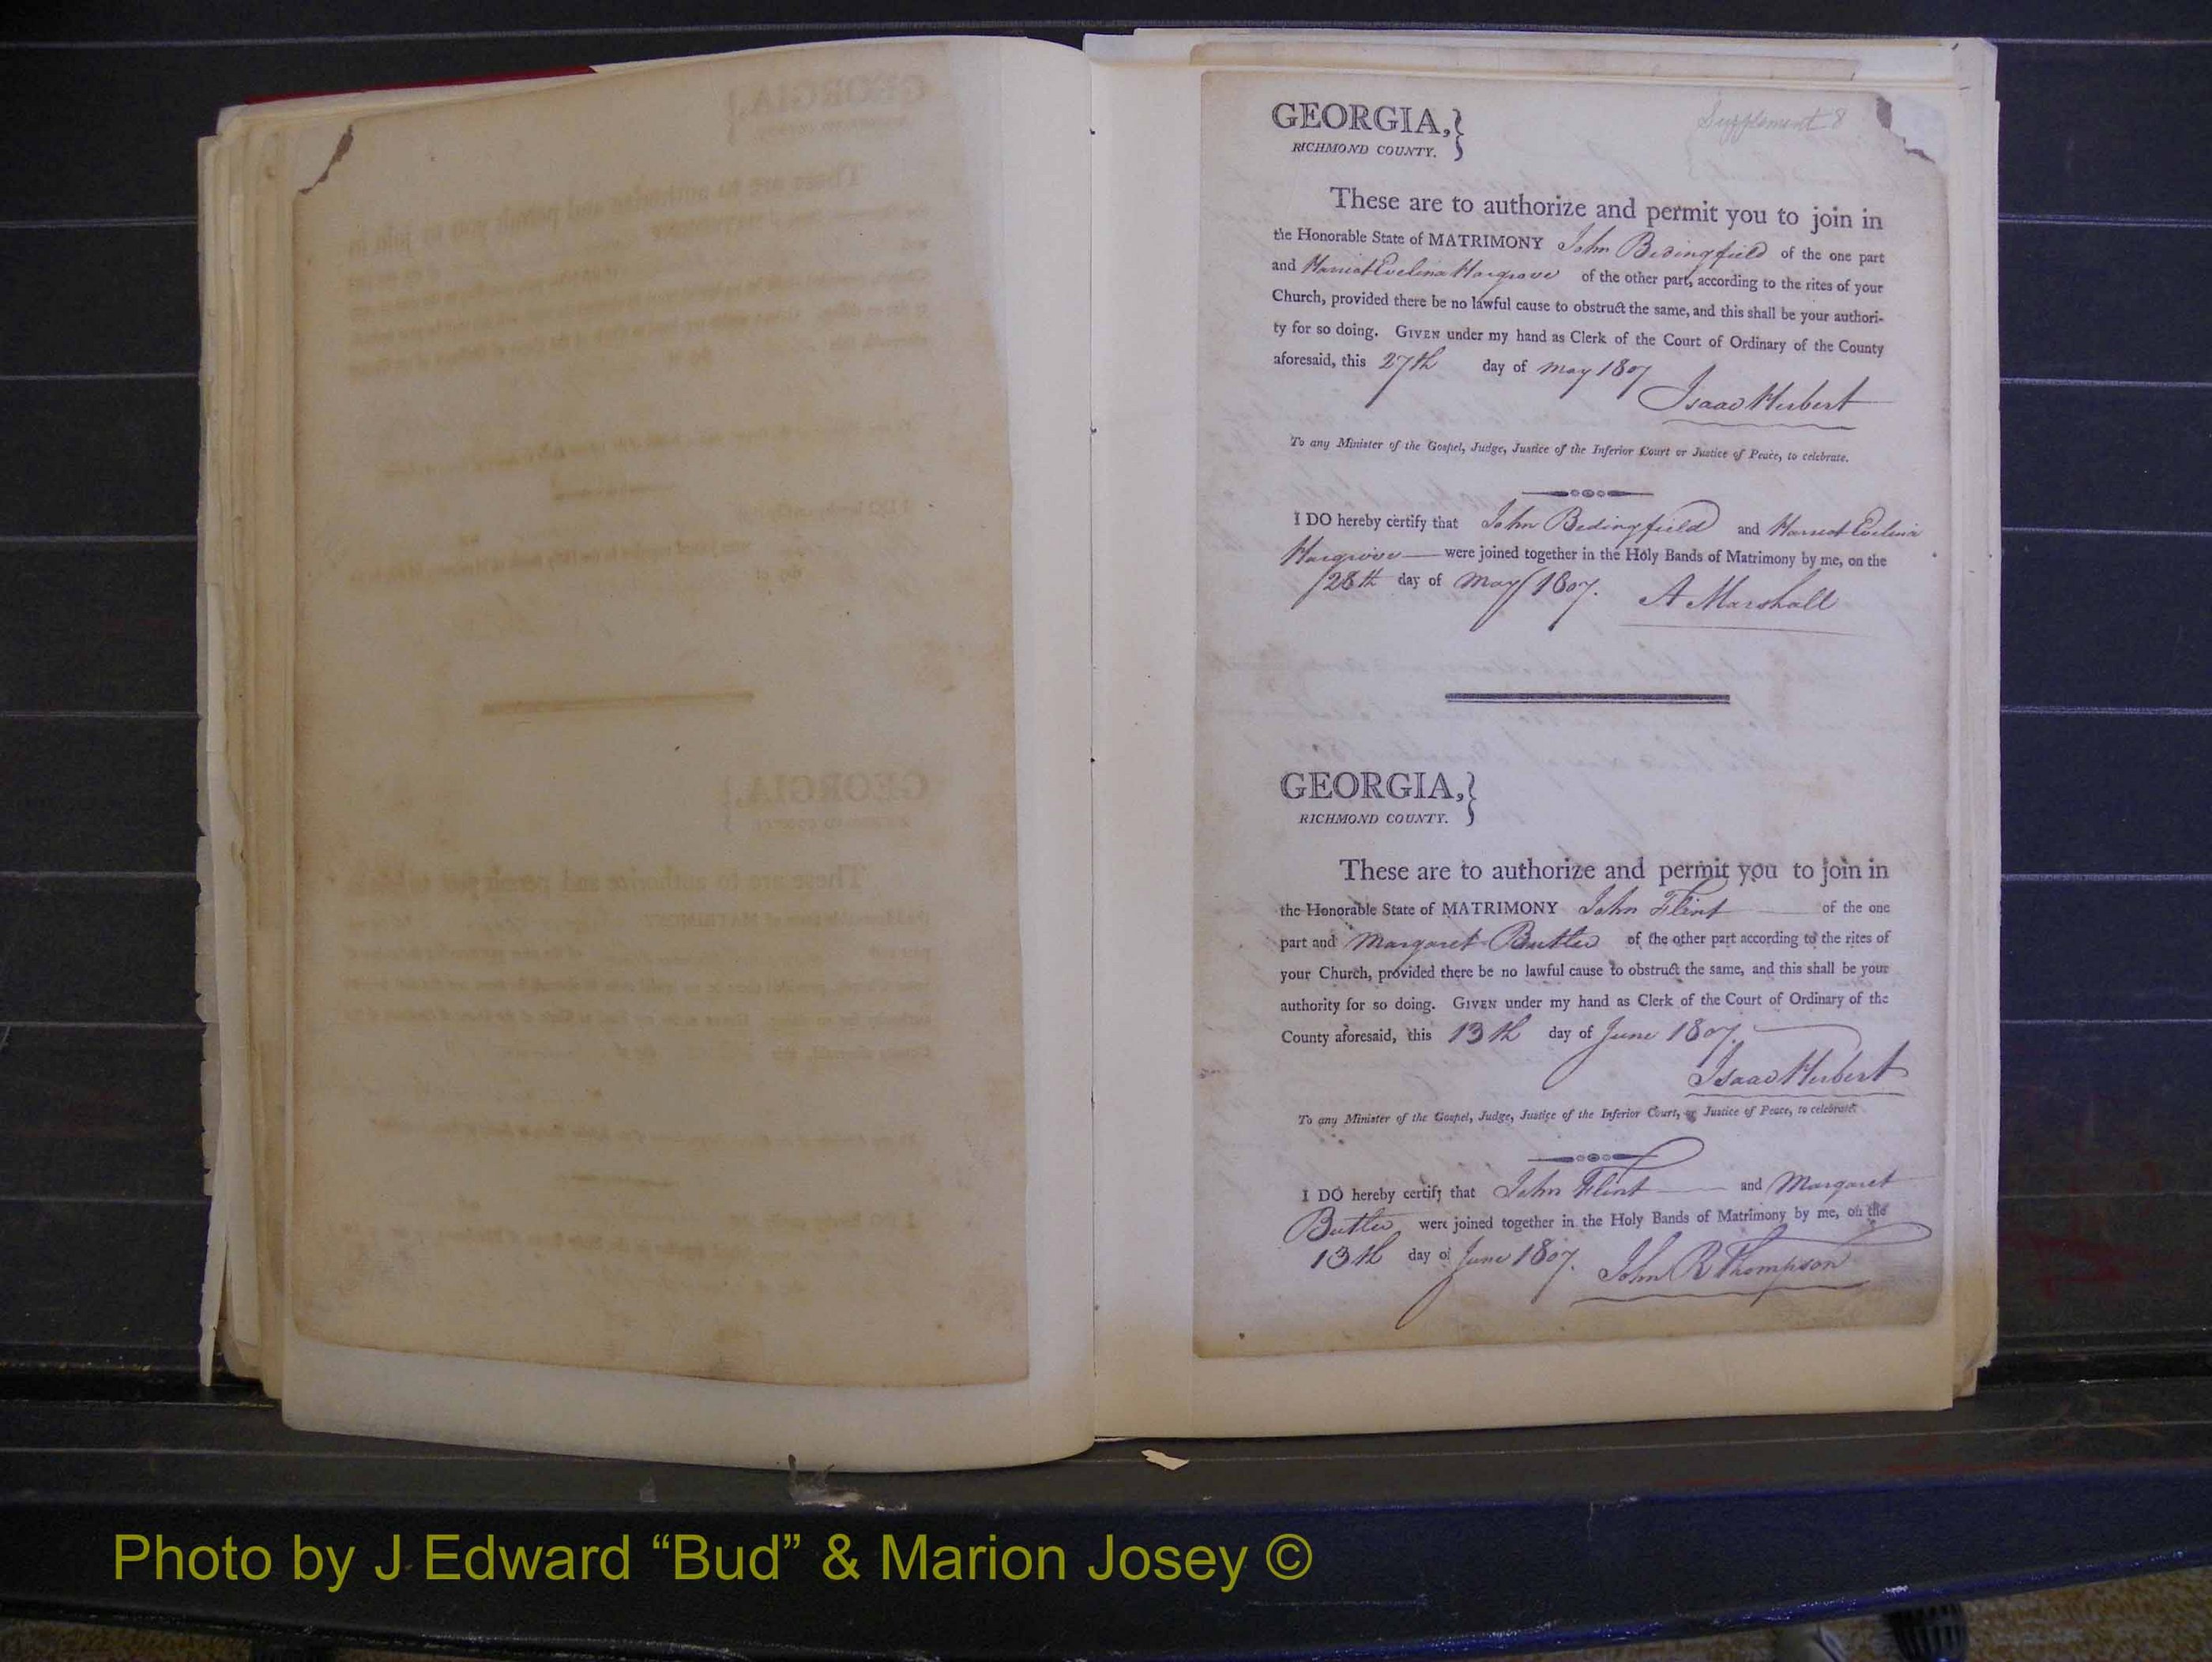 Supplement 8
GEORGIA,
RICHMOND COUNTY.
These are to authorize and permit you to join in
the Honorable State of MATRIMONY John Bedingfield of the one part
and Harriot Evelina Hargrove of the other part, according to the rites of your
Church, provided there be no lawful cause to obstruct the same, and this shall be your authori-
ty for so doing. GIVEN under my hand as Clerk of the Court of Ordinary of the County
aforesaid, this 27th day of May 1807
Isaac Herbert
To any Minister of the Gospel, Judge, Justice of the Inferior Court or Justice of Peace, to celebrate.
I DO hereby certify that John Bedingfield and Harriot Evelina
Hargrove were joined together in the Holy Bands of Matrimony by me, on the
28th day of May 1807.
A Marshall
GEORGIA,
RICHMOND COUNTY.
These are to authorize and permit you to join in
the Honorable State of MATRIMONY John Flint of the one
part and Margaret Butler of the other part according to the rites of
your Church, provided there be no lawful cause to obstruct the same, and this shall be your
authority for so doing. GIVEN under my hand as Clerk of the Court of Ordinary of the
County aforesaid, this 13th day of June 1807.
Isaac Herbert
To any Minister of the Gospel, Judge, Justice of the Inferior Court, or Justice of Peace, to celebrate.
I DO hereby certify that John Flint and Margaret
Butler were joined together in the Holy Bands of Matrimony by me, on the
13th day of June 1807.
John R Thompson
Photo by J Edward “Bud” & Marion Josey ©